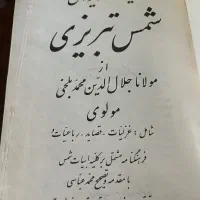 شمس تبریزی
از
مولانا جلال الدین محمد بلخی
مولوی
شامل: غزلیات، قصاید، رباعیات و
فرهنگنامه مشتمل بر کلیه ابیات شمس
با مقدمه و تصحیح محمد عباسی